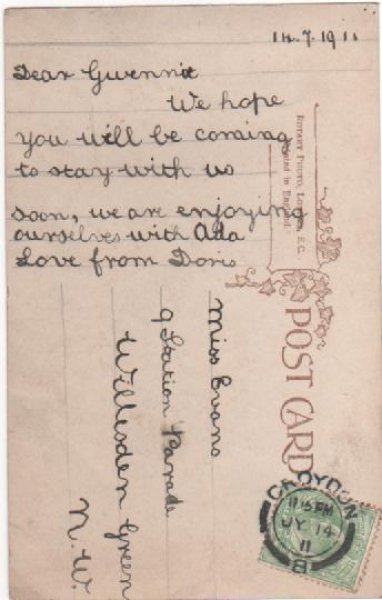 14.7.1911
Dear Gwennie
We hope
you will be coming
to stay with us
soon, we are enjoying
ourselves with Ada
Love from Doris
Miss Evans
9 Station Parade
Willesden Green
N.W.
POST CARD
ROTARY PHOTO, LONDON, E.C.
Printed in England.
CROYDON
PM
JY 14
11
B